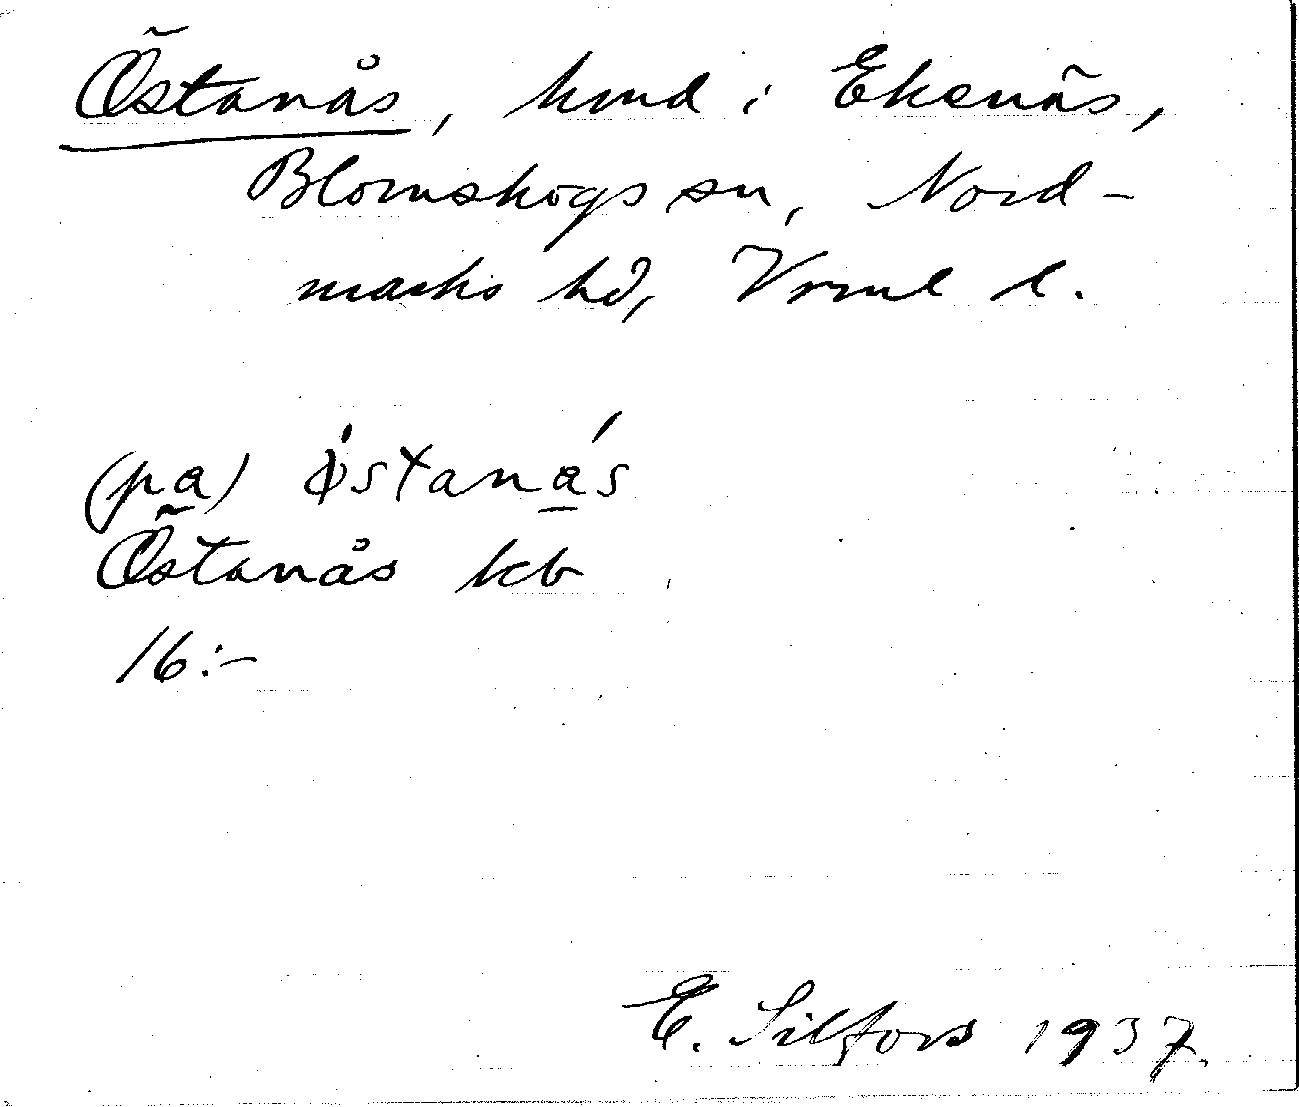 Östanås, hmd i Ekenäs,
Blomskogs sn, Nord-
marks hd, Vrml l.
(pa̲) ǿstaná̲s
Östanås kb
16:-
E. Silfors 1937.